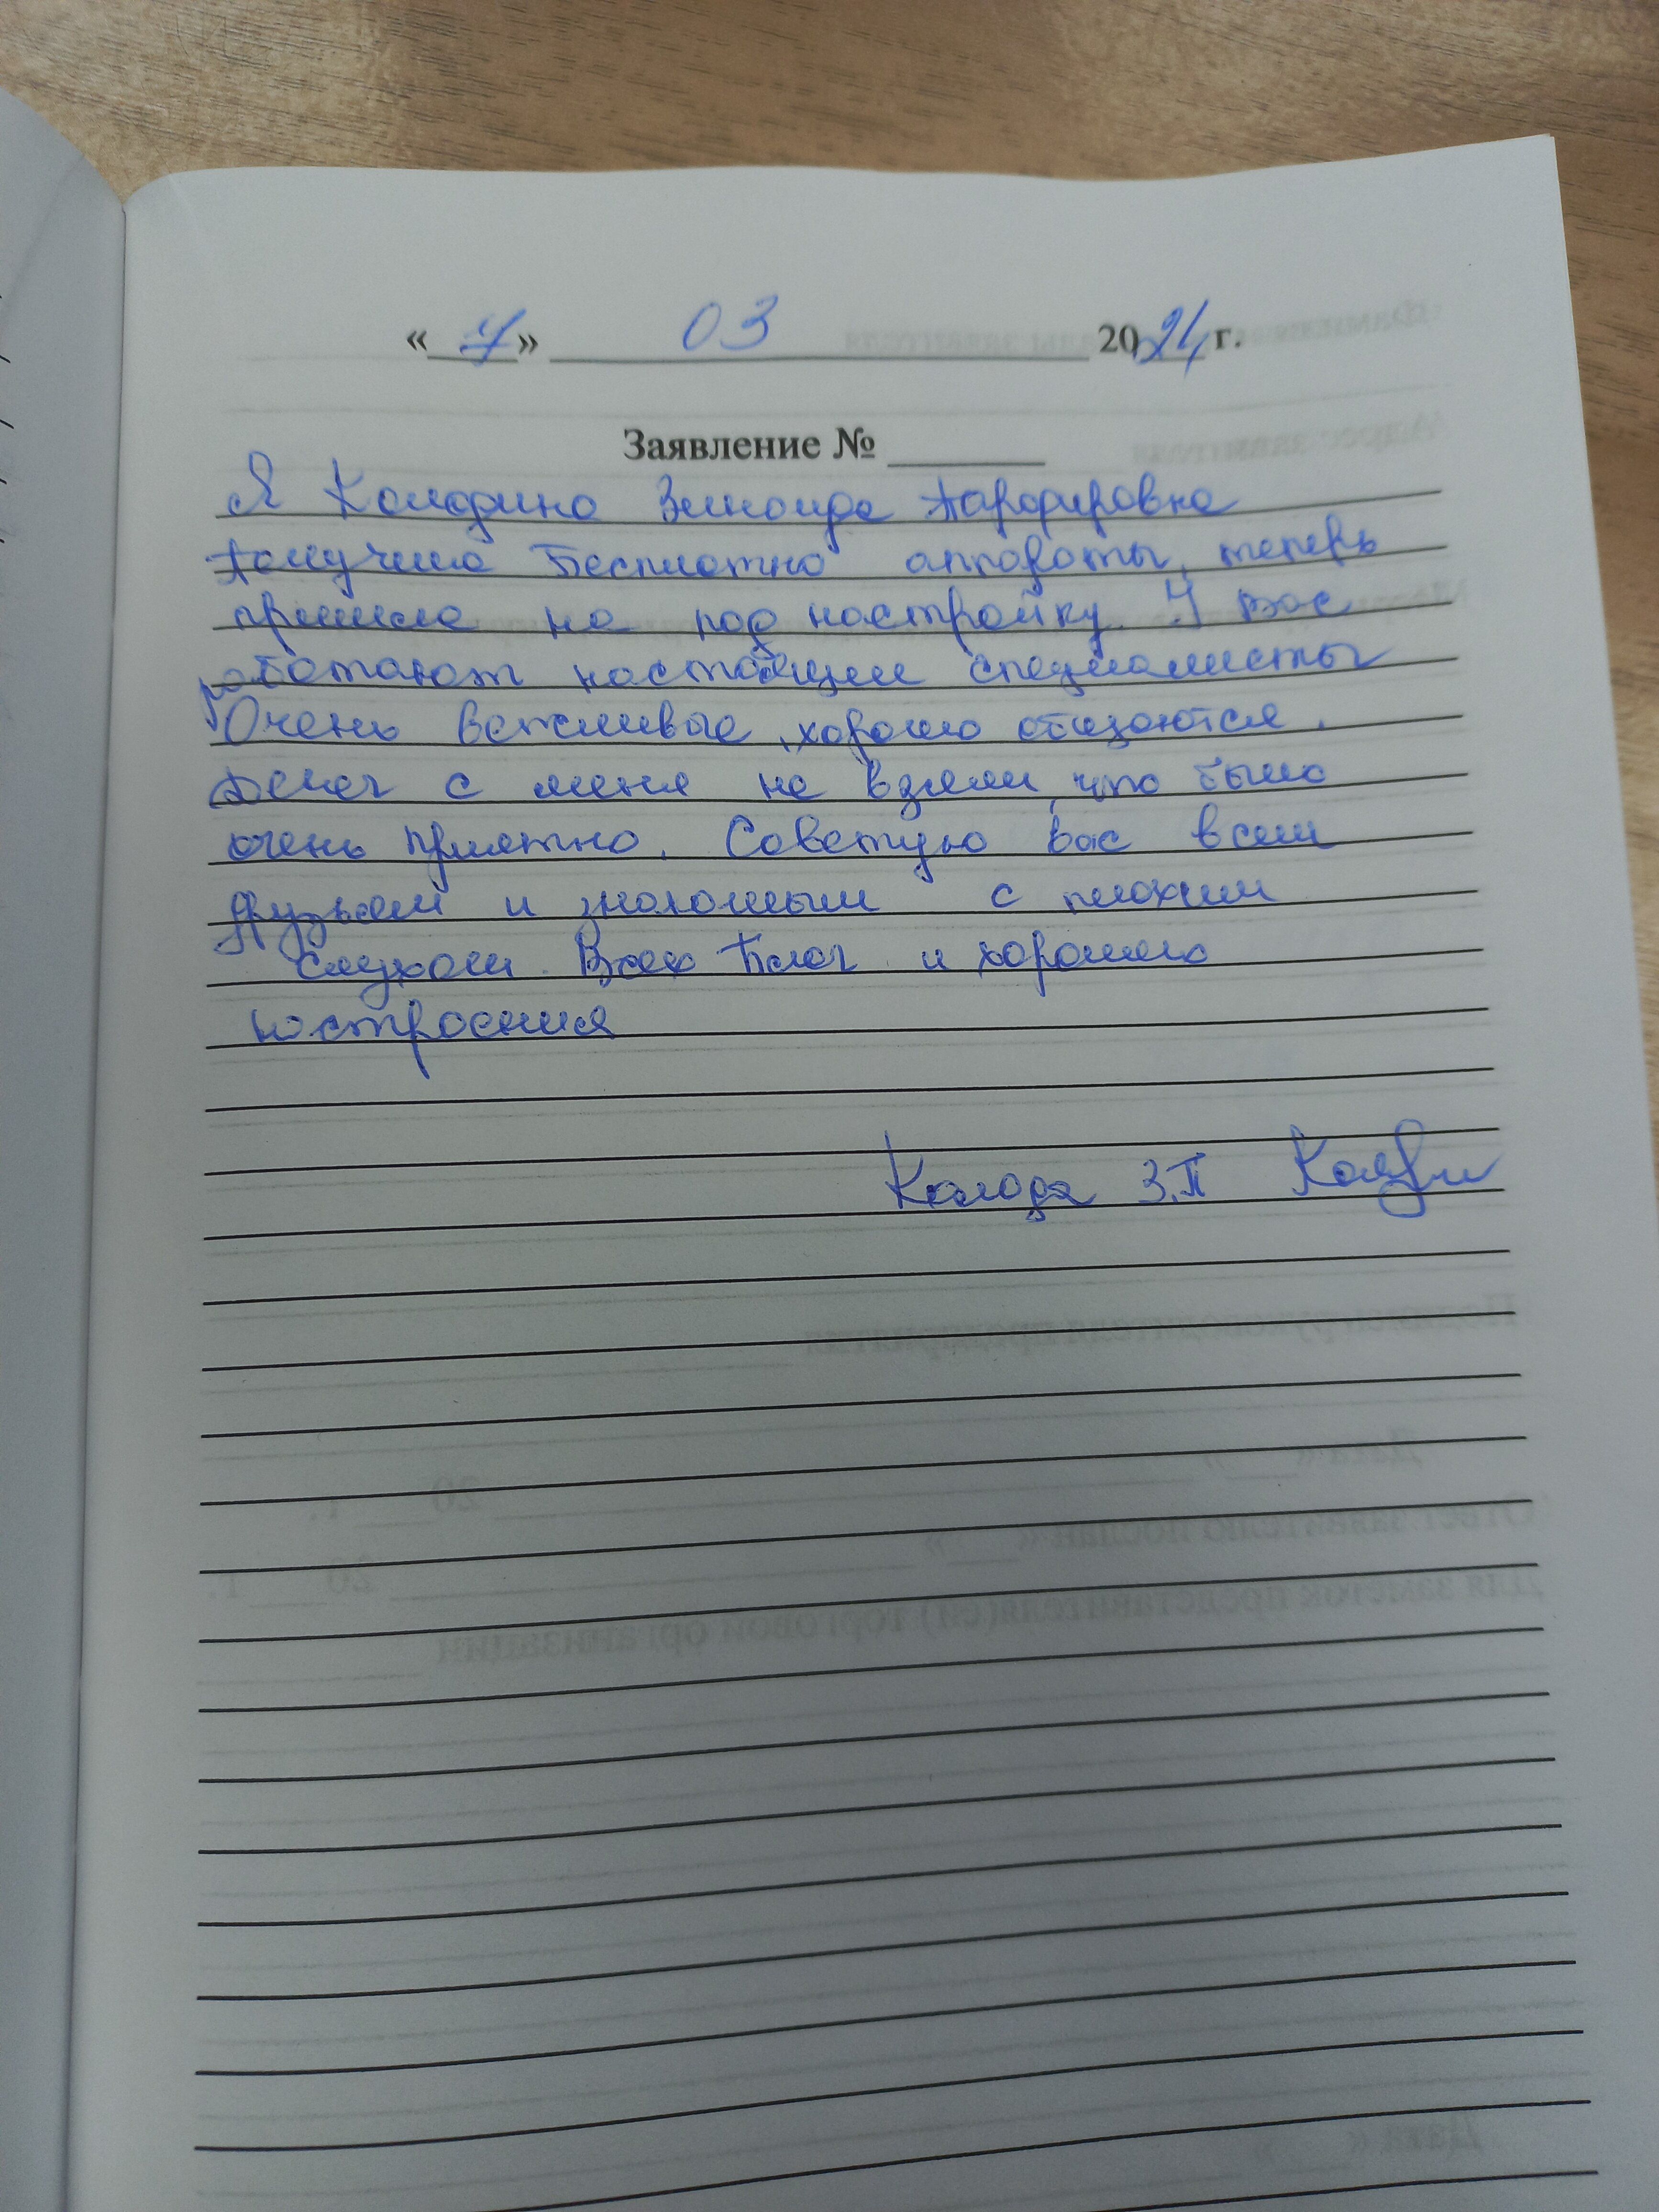 «7» 03 2024 г.
Заявление №
Я Зинаида Парфировна
получила бесплатно аппараты, теперь
пришла на под настройку. У вас
работают настоящии специалисты
Очень вежливые, хорошо общаются.
Денег с меня не взяли, что было
очень приятно. Советую вас всем
друзьям и знакомым с плохим
слухом. Всех благ и хорошего
настроения
З.П